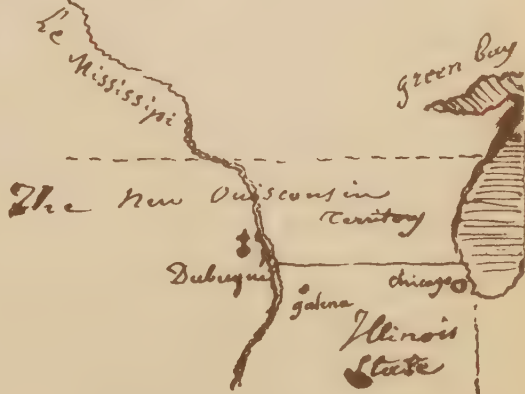 Le
Mississipi
green bay
The New Ouisconsin
Territory
Dubuque
chicago
galena
Illinois
State